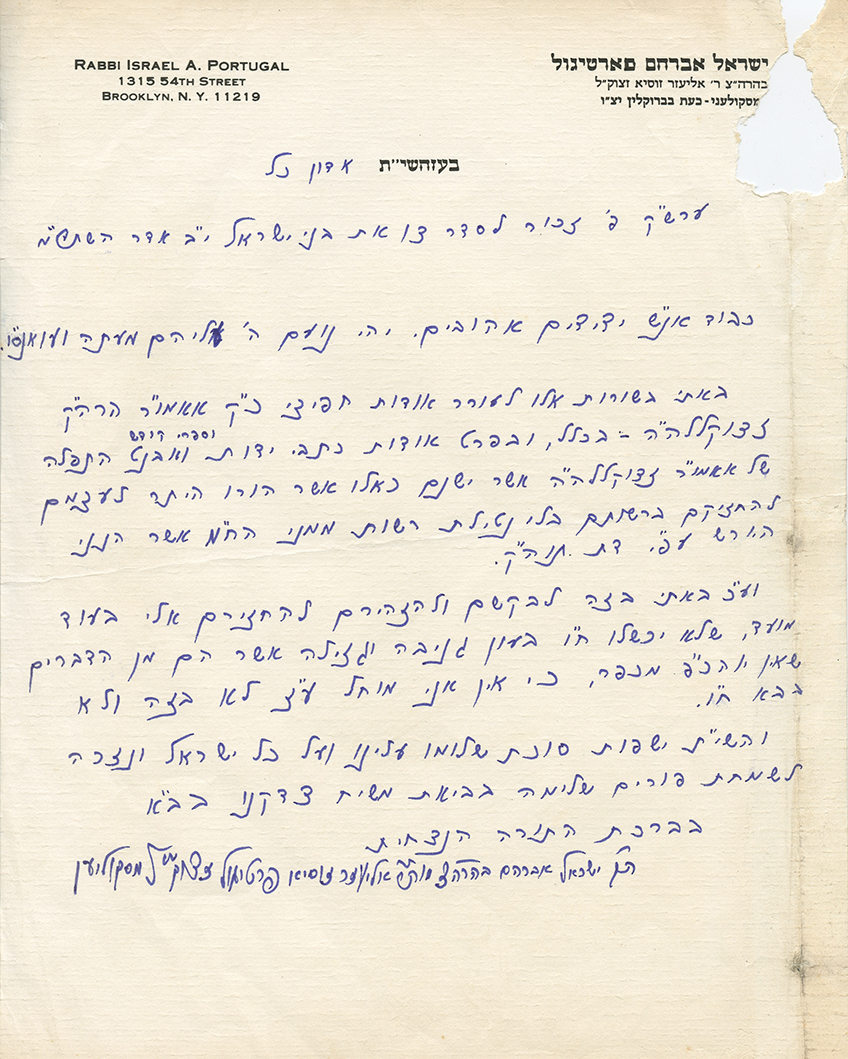 RABBI ISRAEL A. PORTUGAL
1315 54TH STREET
BROOKLYN, N. Y. 11219
ישראל אברהם פארטיגול
בהרה״צ ר׳ אליעזר זוסיא זצוק״ל
מסקולעני - כעת בברוקלין יצ״ו
בעזהשי״ת אדון כל
ערש״ק פ׳ זכור לסדר צו את בני ישראל י״ב אדר
כבוד אנ״ש ידידים אהובים. יהי נועם ה׳ עליהם מעתה
באתי בשורות אלו לעורר אודות חפיצי כ״ק אאמו״ר הרה״ק
זצוקללה״ה - בכלל, ובפרט אודות כתבי ידות וספרי קודש ואבנט התפלה
של אאמו״ר זצוקללה״ה אשר ישנם כאלו אשר הורו היתר לעצמם
להחזיקם ברשותם בלי נטילת רשות ממני הח״מ אשר הנני
היורש עפ״י דת תוה״ק.
וע״כ באתי בזה לבקשם ולהזהירם להחזירם אלי בעוד
מועד, שלא יכשלו ח״ו בעון גניבה וגזילה אשר הם מן הדברים
שאין יוהכ״פ מכפר, כי אין אני מוחל ע״ז לא בזה ולא
בבא ח״ו.
והשי״ת יפרוס סוכת שלומו עלינו ועל כל ישראל ונזכה
לשמחת פורים שלימה בביאת משיח צדקנו בב״א
בברכת התורה הנצחית
הק׳ ישראל אברהם בהרה״צ אליעזר זוסיא פורטיגול מסקוליען